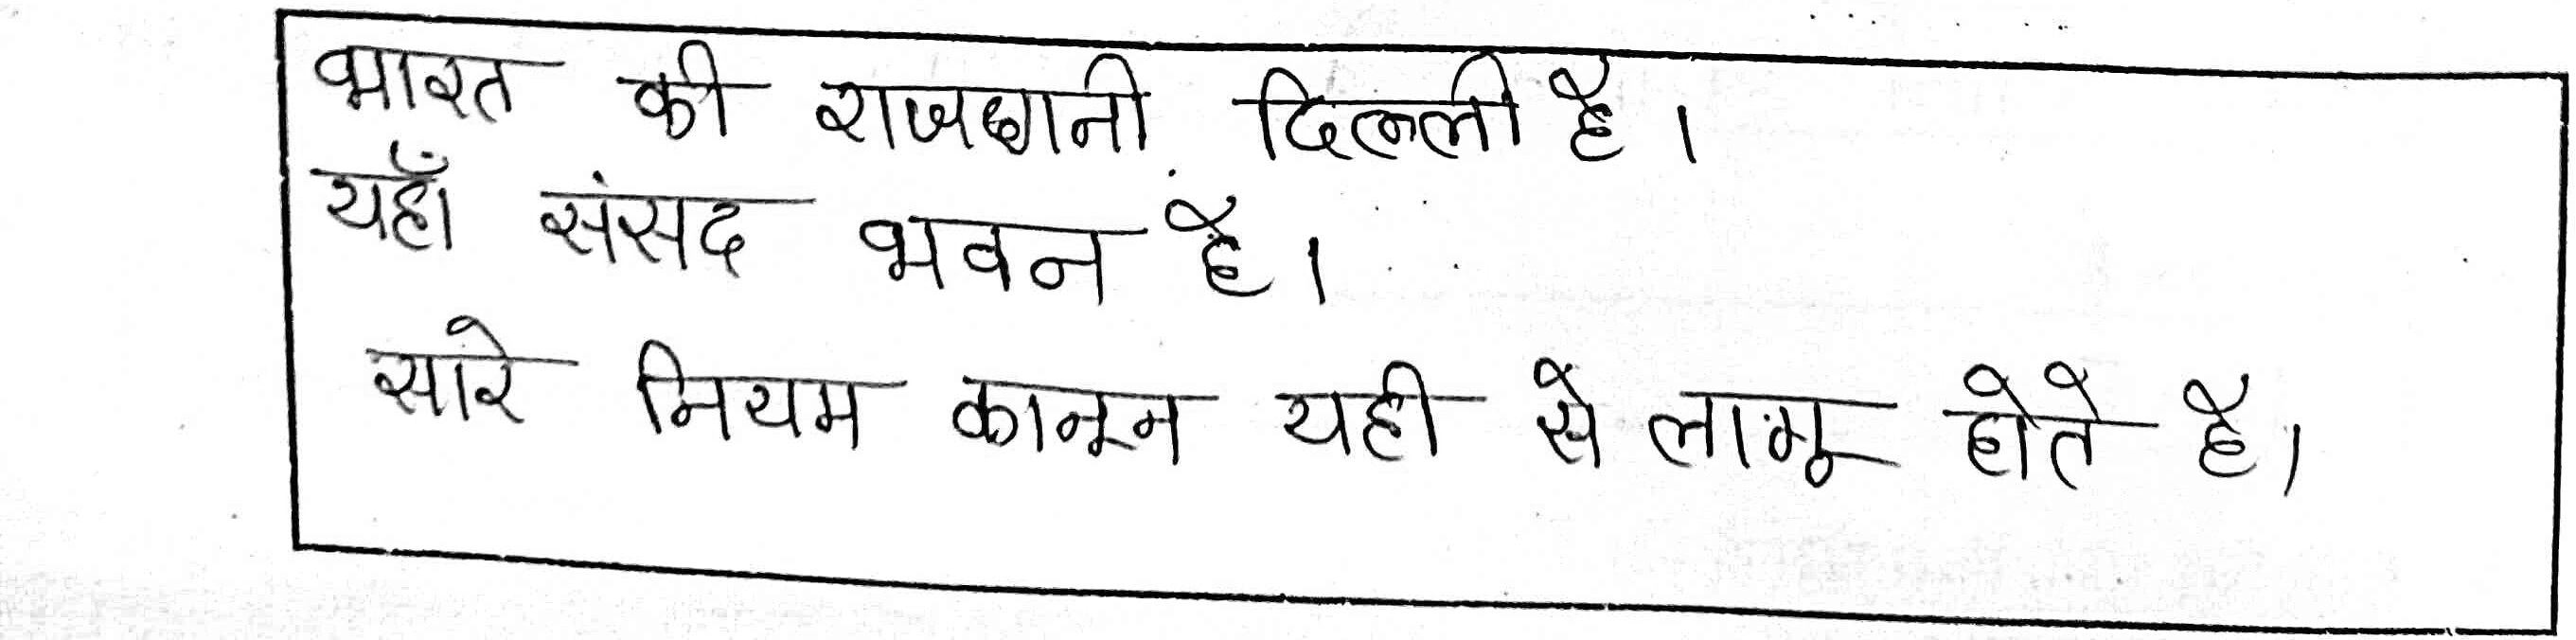 भारत की राजधानी दिल्ली है।
यहाँ संसद भवन है।
सारे नियम कानून यही से लागू होते है।